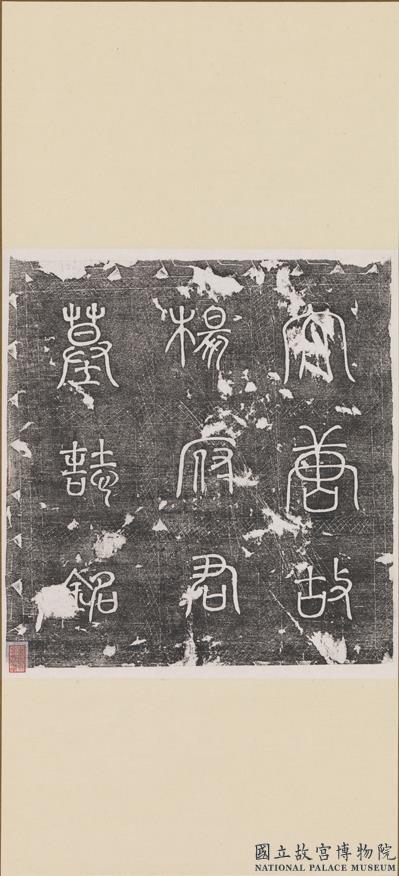 大唐故
楊府君
墓誌銘
國立故宮博物院
NATIONAL PALACE MUSEUM